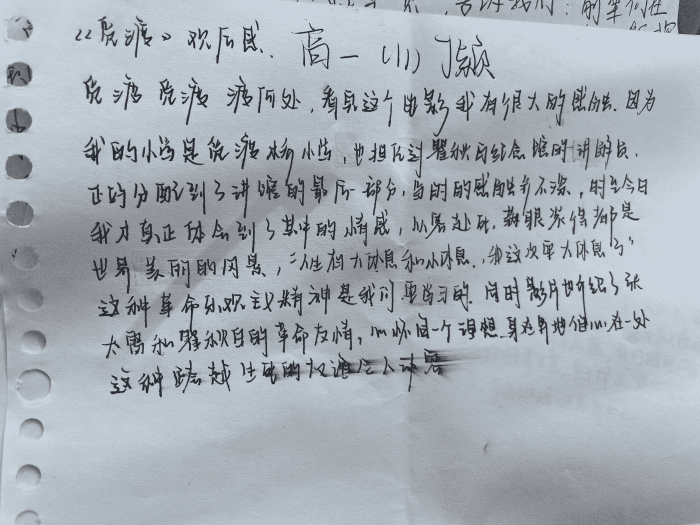 《觅渡》观后感. 高一(11) 丁颖
觅渡 觅渡 渡何处, 看完这个电影我有很大的感触. 因为
我的小学是觅渡桥小学, 也担任过瞿秋白纪念馆的讲解员.
正好分配到了讲馆的最后一部分, 当时的感触并不深, 时至今日
我才真正体会到了其中的情感, 从容赴死, 看眼求保都是
世界美丽的风景, "人生有大休息和小休息, 我这次要大休息了"
这种革命乐观主义精神是我们要学习的. 同时影片也介绍了张
太雷和瞿秋白的革命友情, 心怀同一个理想, 身在异地但心在一处
这种跨越生死的友谊令人动容